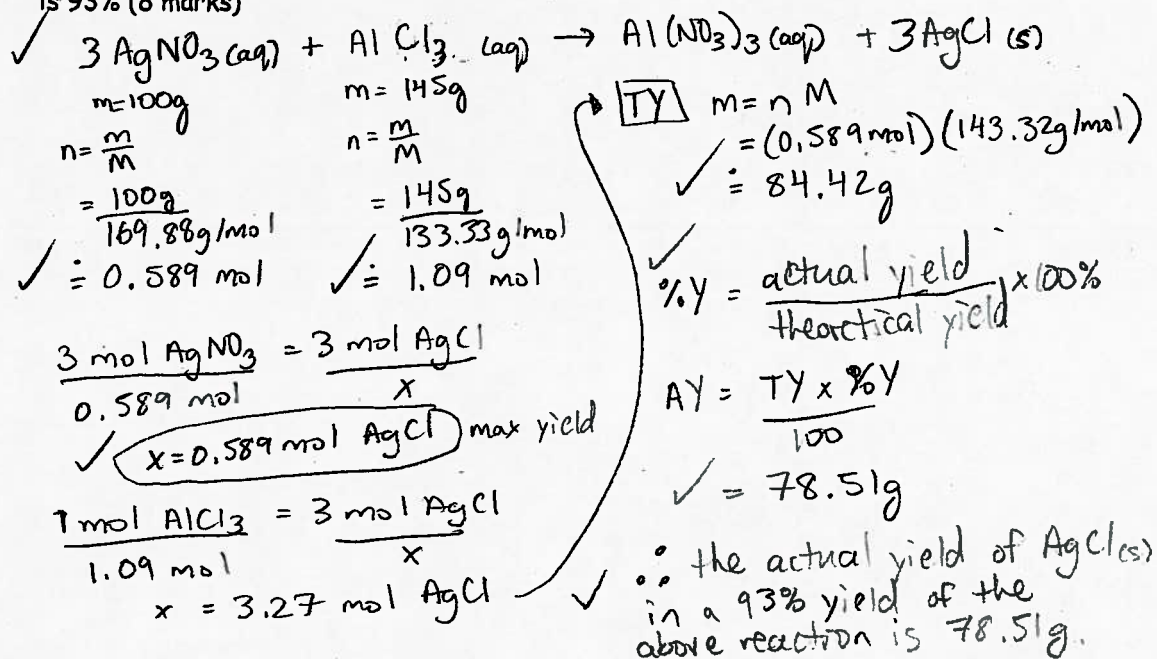 is 93% (8 marks)
✓ 3 AgNO3 (aq) + AlCl3 (aq) → Al(NO3)3 (aq) + 3AgCl (s)
m=100g
n= m/M
= 100g/169.88g/mol
✓ ≐ 0.589 mol
m= 145g
n= m/M
= 145g/133.33g/mol
✓ ≐ 1.09 mol
3 mol AgNO3/0.589 mol = 3 mol AgCl/x
✓ x=0.589 mol AgCl max yield
1 mol AlCl3/1.09 mol = 3 mol AgCl/x
x = 3.27 mol AgCl
TY m= n M
= (0.589mol)(143.32g/mol)
✓ ≐ 84.42g
✓ %Y = actual yield/theoretical yield x100%
AY = TY x %Y/100
✓ = 78.51g
✓ ∴ the actual yield of AgCl(s)
in a 93% yield of the
above reaction is 78.51g.